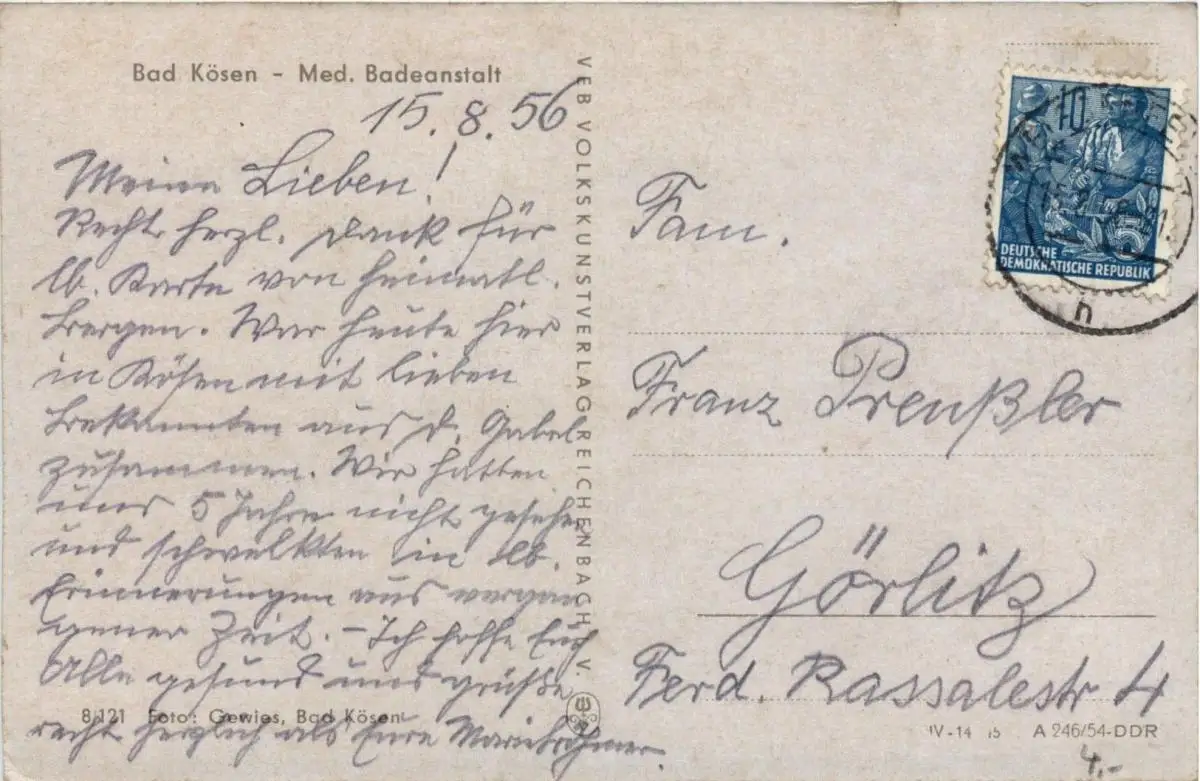 Bad Kösen - Med. Badeanstalt
15. 8. 56
Meine Lieben!
Recht herzl. Dank für
lb. Karte von heimatl.
Bergen. War heute hier
in Kösen mit lieben
Bekannten aus d. Gabel
zusammen. Wir hatten
uns 5 Jahre nicht gesehen
und schwelkten in lb.
Erinnerungen aus vergan
gener Zeit. - Ich hoffe Euch
Alle gesund und grüße
recht herzlich als Eure
8/121 Foto: Gewies, Bad Kösen
VEB VOLKSKUNSTVERLAG REICHENBACH V.
10
DEUTSCHE
DEMOKRATISCHE REPUBLIK
Fam.
Franz Preußler
Görlitz
Ferd. Lassalestr 4
A 246/54-DDR
4.-